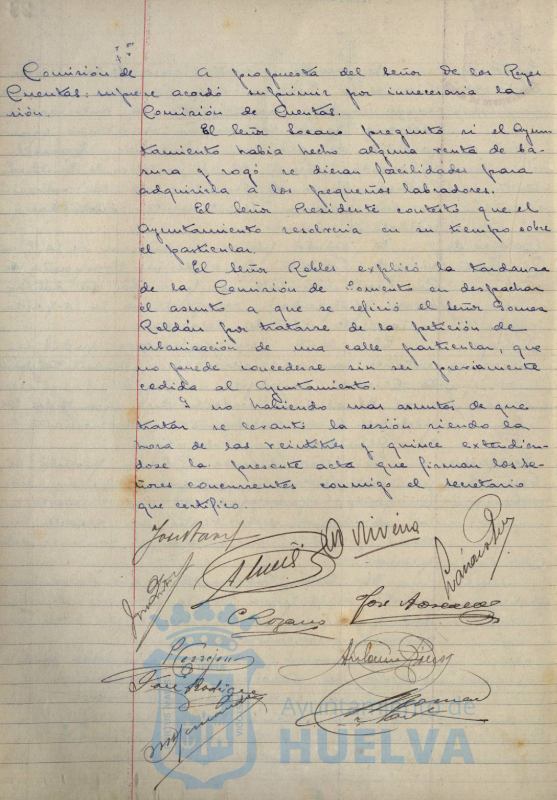 Comisión de
Cuentas: supre
sión.
A propuesta del señor De los Reyes
se acordó suprimir por innecesaria la
Comisión de Cuentas.
El señor Lozano preguntó si el Ayun
tamiento había hecho alguna venta de ba-
sura y rogó se dieran facilidades para
adquirirla a los pequeños labradores.
El señor Presidente contestó que el
Ayuntamiento resolveria en su tiempo sobre
el particular.
El señor Robles explicó la tardanza
de la Comisión de Fomento en despachar
el asunto a que se refirió el señor Gomez
Roldán por tratarse de la petición de
urbanización de una calle particular, que
no puede concederse sin ser previamente
cedida al Ayuntamiento.
Y no habiendo mas asuntos de que
tratar se levantó la sesión siendo la
hora de las veintitres y quince extendien-
dose la presente acta que firman los se-
ñores concurrentes conmigo el secretario
que certifico.
Riveira
C Lozano
José
Antonio
José Rodríguez
Ayuntamiento de
HUELVA